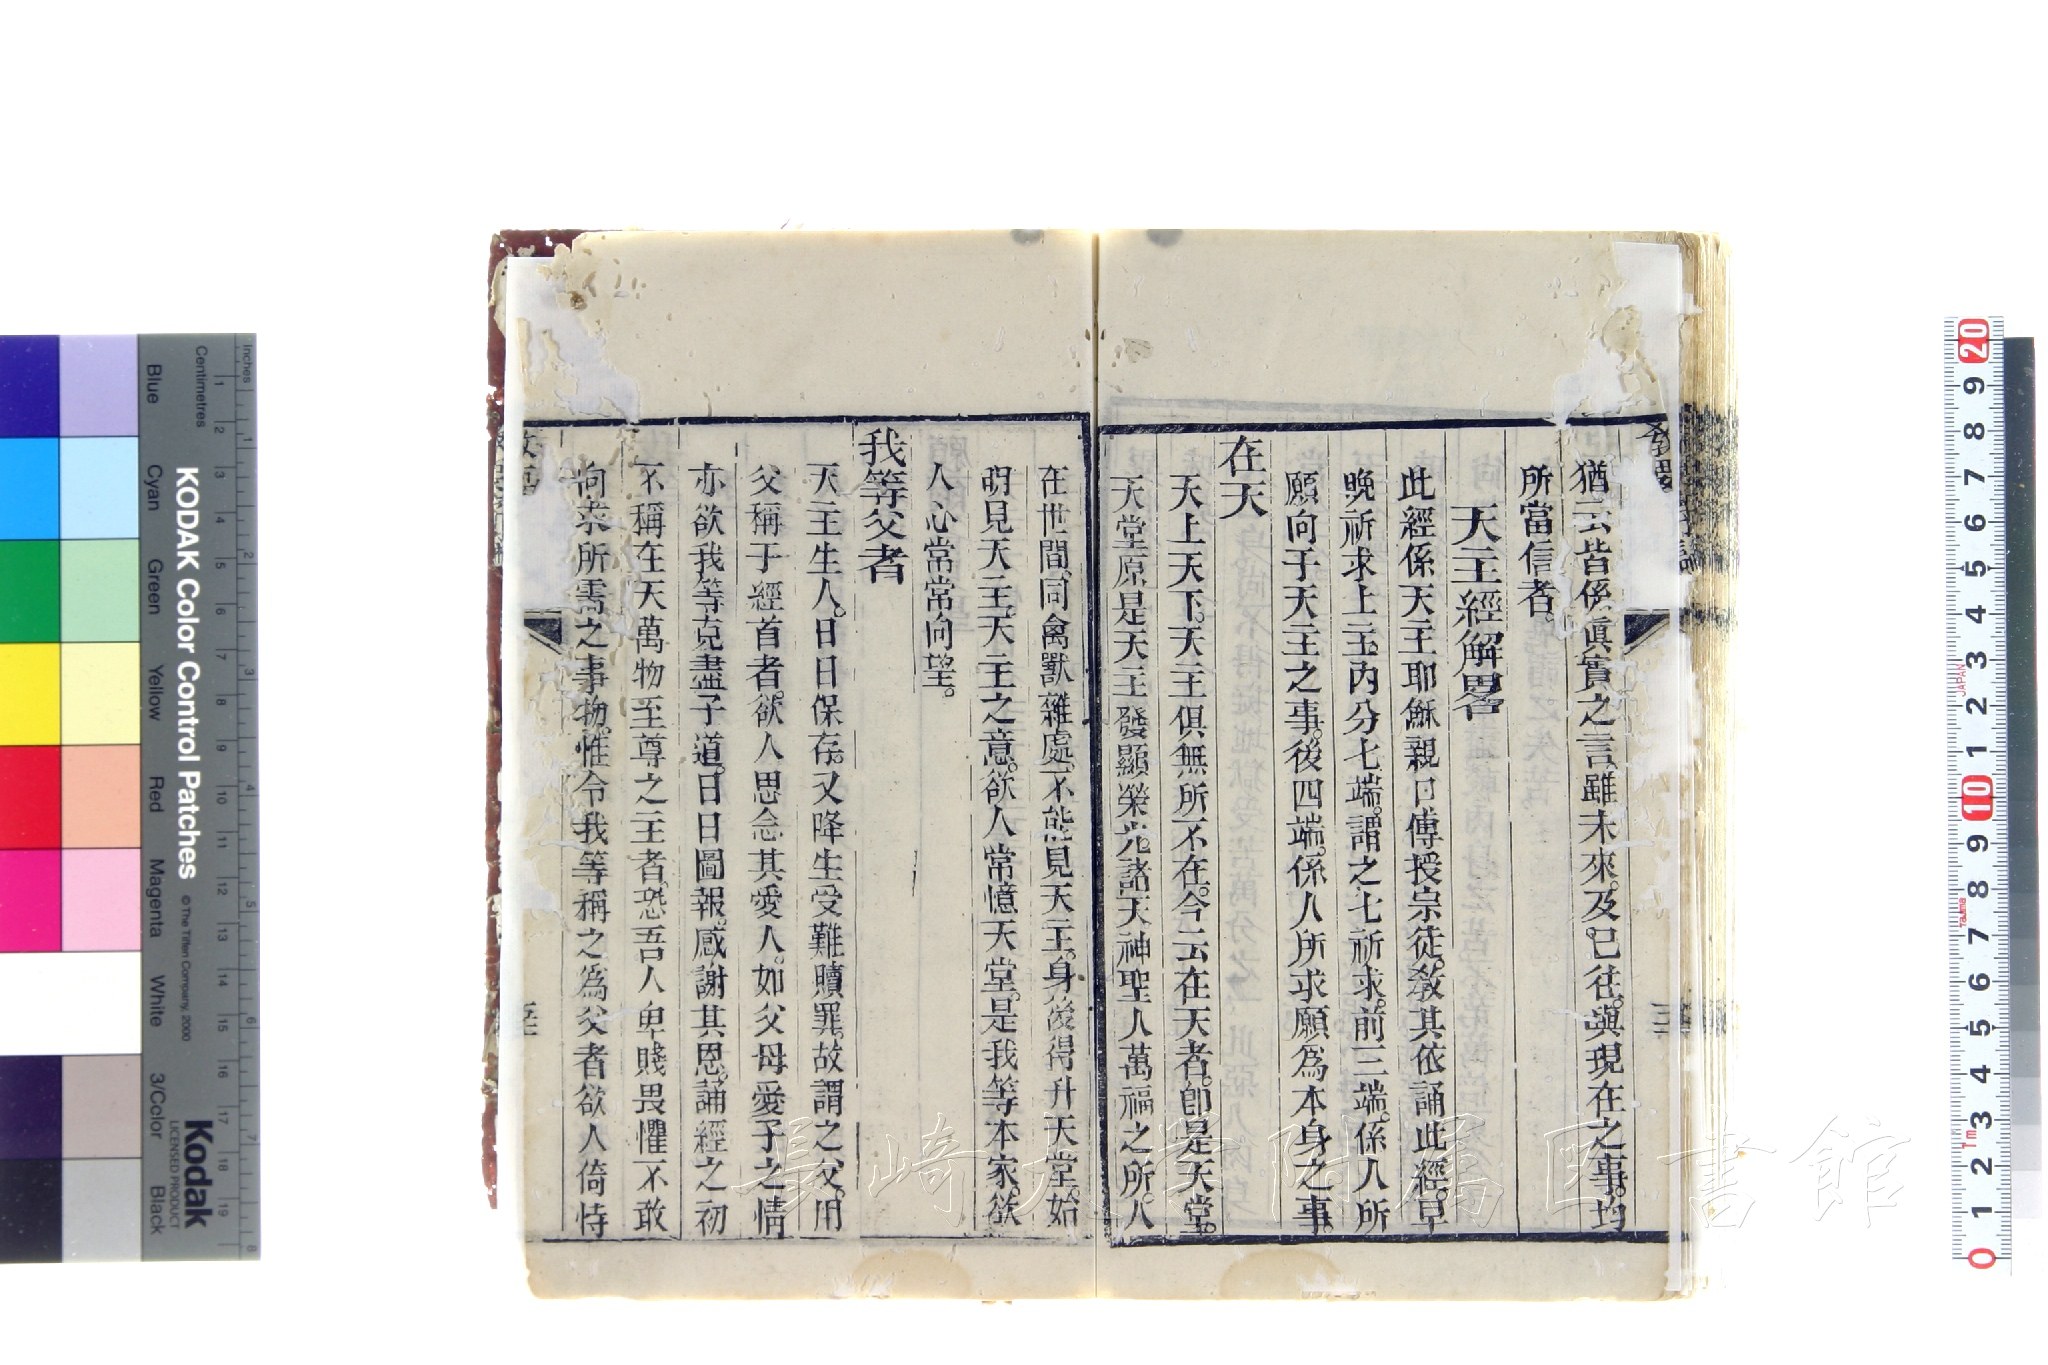 猶云皆係眞實之言雖未來及已往與現在之事均
所當信者。
天主經解畧
此經係天主耶穌親口傳授宗徒教其依誦此經早
晚祈求上主内分七端謂之七祈求前三端係人所
願向于天主之事後四端係人所求願爲本身之事
在天
天上天下。天主俱無所不在。今云在天者。卽是天堂。
天堂原是天主發顯榮光。諸天神聖人萬福之所。人
在世間同禽獸雜處。不能見天主。身後得升天堂。始
明見天主。天主之意。欲人常憶天堂。是我等本家。欲
人心常常向望。
我等父者
天主生人。日日保存。又降生受難贖罪。故謂之父。用
父稱于經首者。欲人思念其愛人。如父母愛子之情
亦欲我等克盡子道。日日圖報。感謝其恩。誦經之初
不稱在天萬物至尊之主者。恐吾人卑賤畏懼不敢
向求所需之事物。惟令我等稱之爲父者欲人倚恃
長崎大学附属図書館
KODAK Color Control Patches
© The Tiffen Company, 2000
Kodak
LICENSED PRODUCT
Inches
Centimetres
Blue
Cyan
Green
Yellow
Red
Magenta
White
3/Color
Black
JAPAN
Tajima